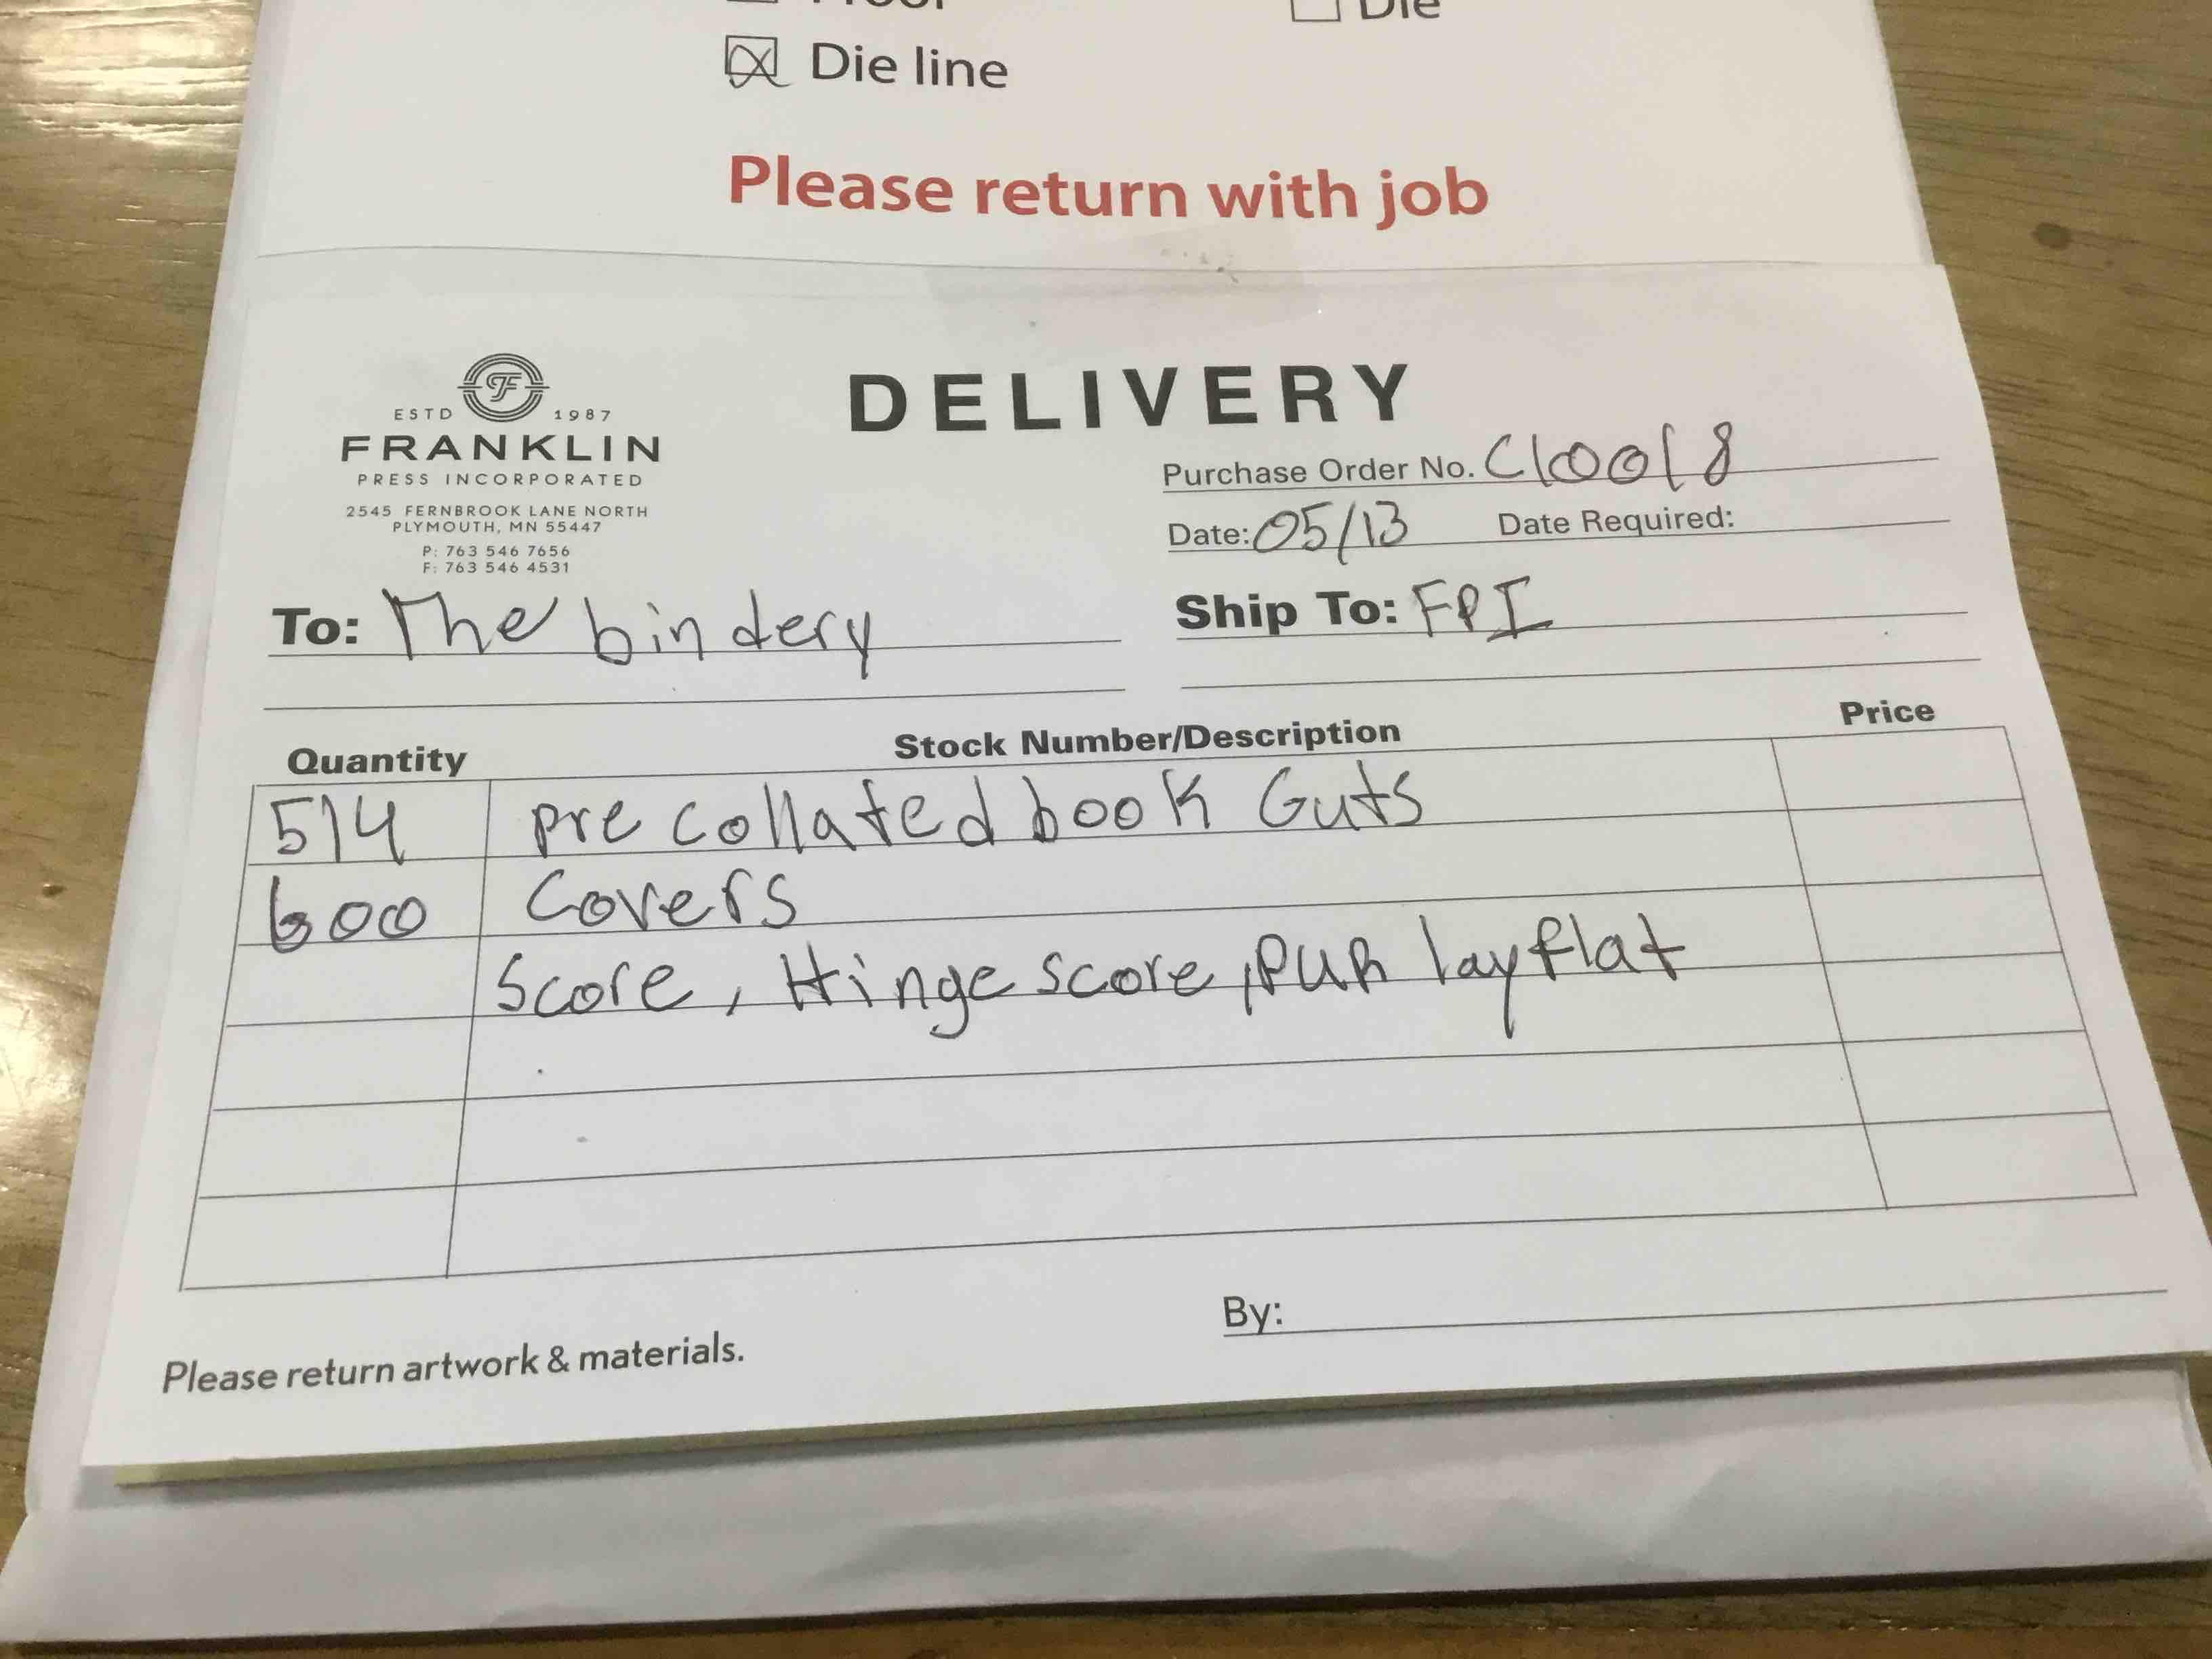 Proof
Die
Die line
Please return with job
ESTD 1987
FRANKLIN
PRESS INCORPORATED
2545 FERNBROOK LANE NORTH
PLYMOUTH, MN 55447
P: 763 546 7656
F: 763 546 4531
DELIVERY
Purchase Order No. C10018
Date: 05/13 Date Required:
To: The bindery
Ship To: FPI
Quantity Stock Number/Description Price
514 pre collated book Guts
600 Covers
Score, Hinge score, PUR layflat
By:
Please return artwork & materials.